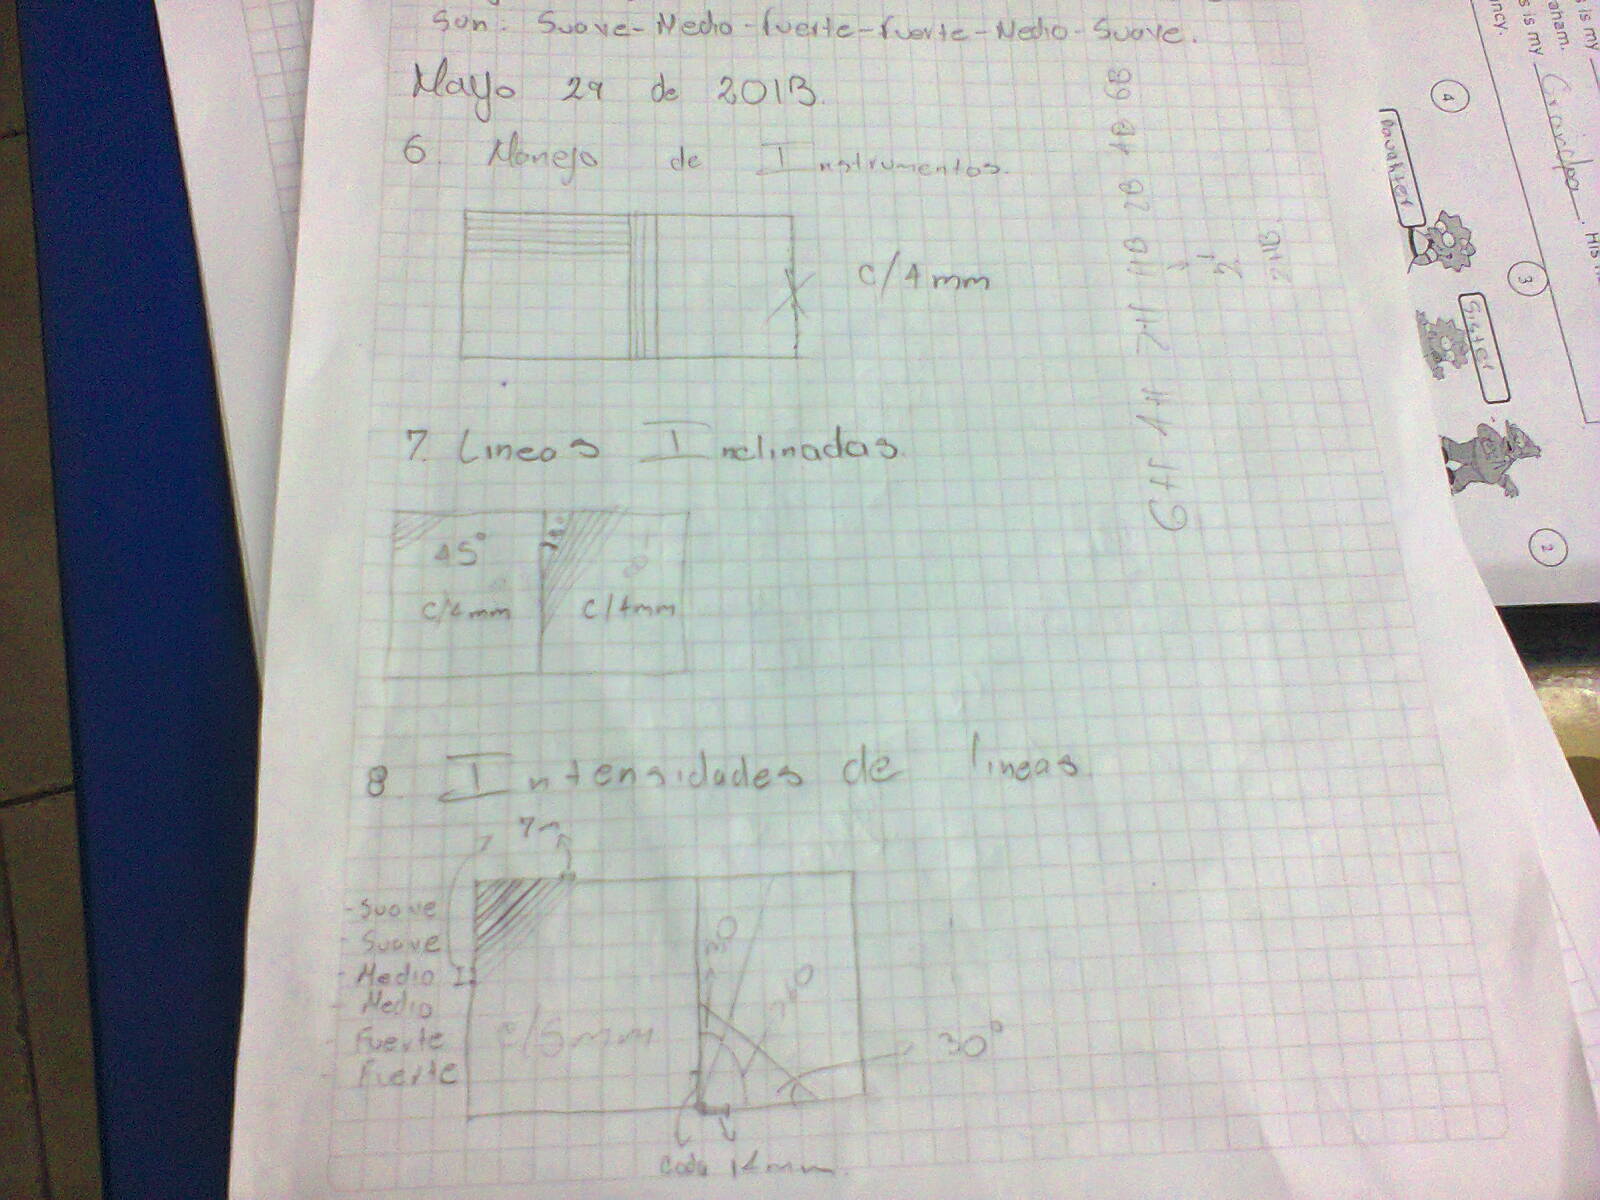 Son: Suave-Medio-fuerte-fuerte-Medio-Suave.
Mayo 29 de 2013.
6. Manejo de Instrumentos.
c/4mm
7. Lineas Inclinadas.
45°
c/4mm
c/4mm
8. Intensidades de lineas.
7m
- Suave
- Suave
- Medio
- Medio
- Fuerte
- Fuerte
c/5mm
30
30°
Cada 14mm.
6H 4H 2H HB 2B 4B 6B
1
2
2HB
is my
aham.
s is my Grandpa. His
ncy.
4
Dawahter
3
Sister
2